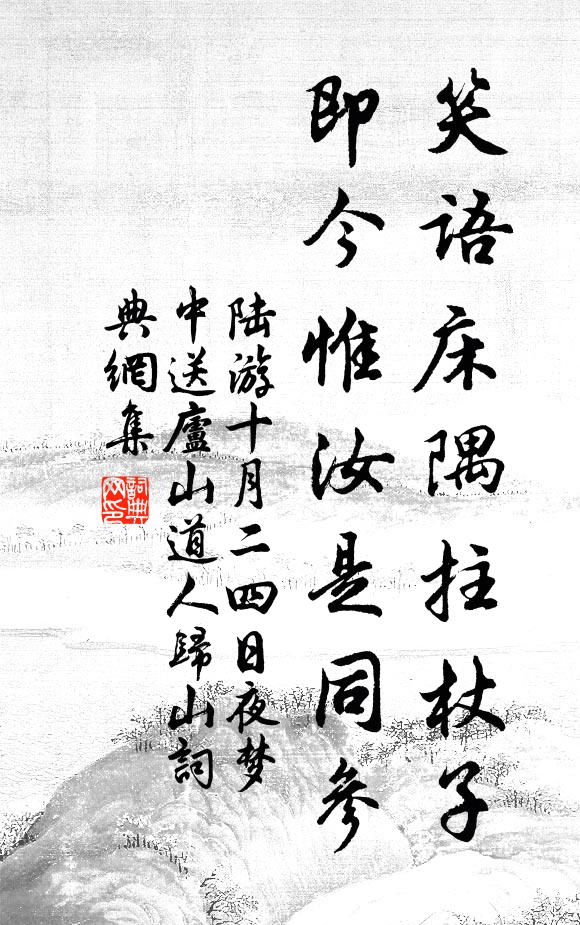 笑语床隅拄杖子
即今惟汝是同参
陆游十月二四日夜梦
中送廬山道人歸山詞
典網集
詞典网印